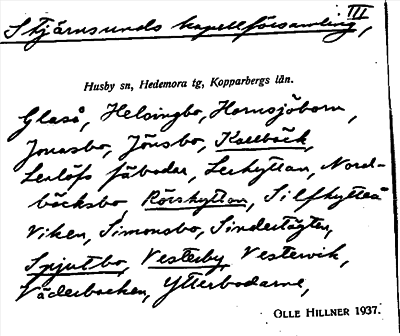 III
Stjärnsunds kapellförsamling,
Husby sn, Hedemora tg, Kopparbergs län.
Glaså, Helsingbo, Hornsjöborn,
Jonasbo, Jönsbo, Kallbäck,
Lerlöfs fäbodar, Lerhyttan, Nord-
bäcksbo Rörshyttan, Silfhytteå
Viken, Simonsbo, Sindertägten,
Spjutbo, Vesterby Vestervik,
Väderbacken, Ytterbodarne,
OLLE HILLNER 1937.